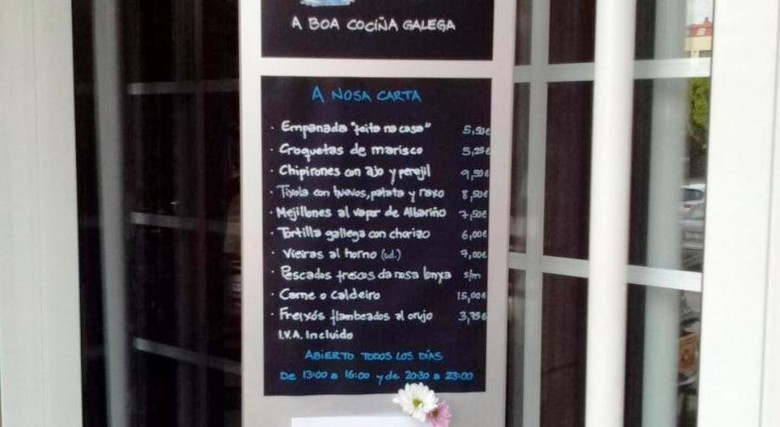 A BOA COCIÑA GALEGA
A NOSA CARTA
· Empanada "feita na casa" 5,50€
· Croquetas de marisco 5,25€
· Chipirones con ajo y perejil 9,50€
· Tixola con huevos, patata y raxo 8,50€
· Mejillones al vapor de Albariño 7,50€
· Tortilla gallega con chorizo 6,00€
· Vieiras al horno (ud.) 7,00€
· Pescados frescos da nosa lonxa s/m
· Carne o Caldeiro 15,00€
· Freixós flambeados al orujo 3,75€
I.V.A. Incluido
ABIERTO TODOS LOS DÍAS
De 13:00 a 16:00 y de 20:30 a 23:00